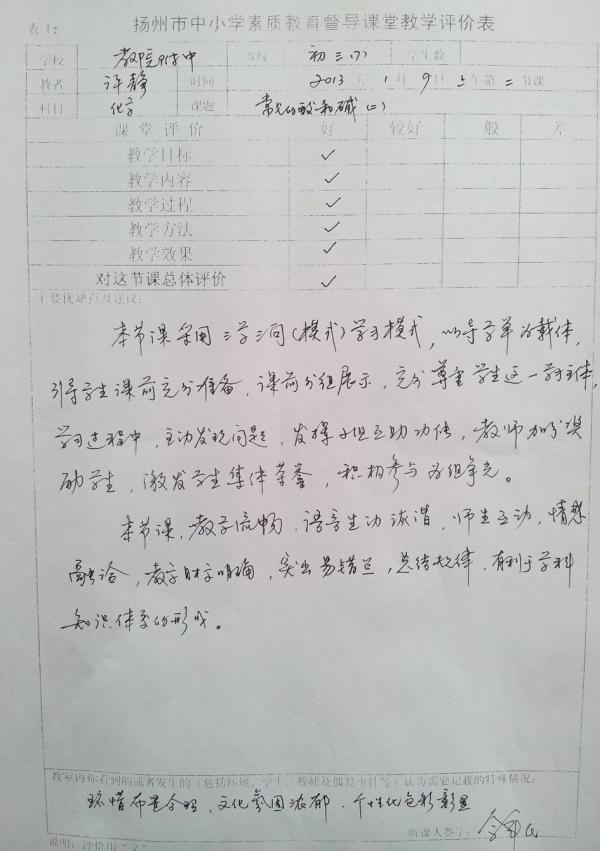 表1: 扬州市中小学素质教育督导课堂教学评价表
学校 教院附中 初三(7) 学生数
教者 许静 时间 2013年1月9日上午第二节课
科目 化学 课题 常见的酸和碱(二)
课堂评价 好 较好 一般 差
教学目标 ✓
教学内容 ✓
教学过程 ✓
教学方法 ✓
教学效果 ✓
对这节课总体评价 ✓
主要优缺点及建议:
本节课采用三学三问(模式)学习模式,以导学单为载体,
引导学生课前充分准备,课前分组展示,充分尊重学生这一学习主体,
学习过程中,主动发现问题,发挥小组互助功能,教师加分奖
励学生,激发学生集体荣誉,积极参与为组争光。
本节课,教学流畅,语言生动诙谐,师生互动,情感
融洽,教学明确,突出易错点,总结规律,有利于学科
知识体系的形成。
教室内你看到的或者发生的(包括环境、学生、教师及偶发事件等)认为需要记载的特殊情况:
环境布置合理,文化氛围浓郁,个性化色彩彰显
听课人签字:
说明:评价用“✓”